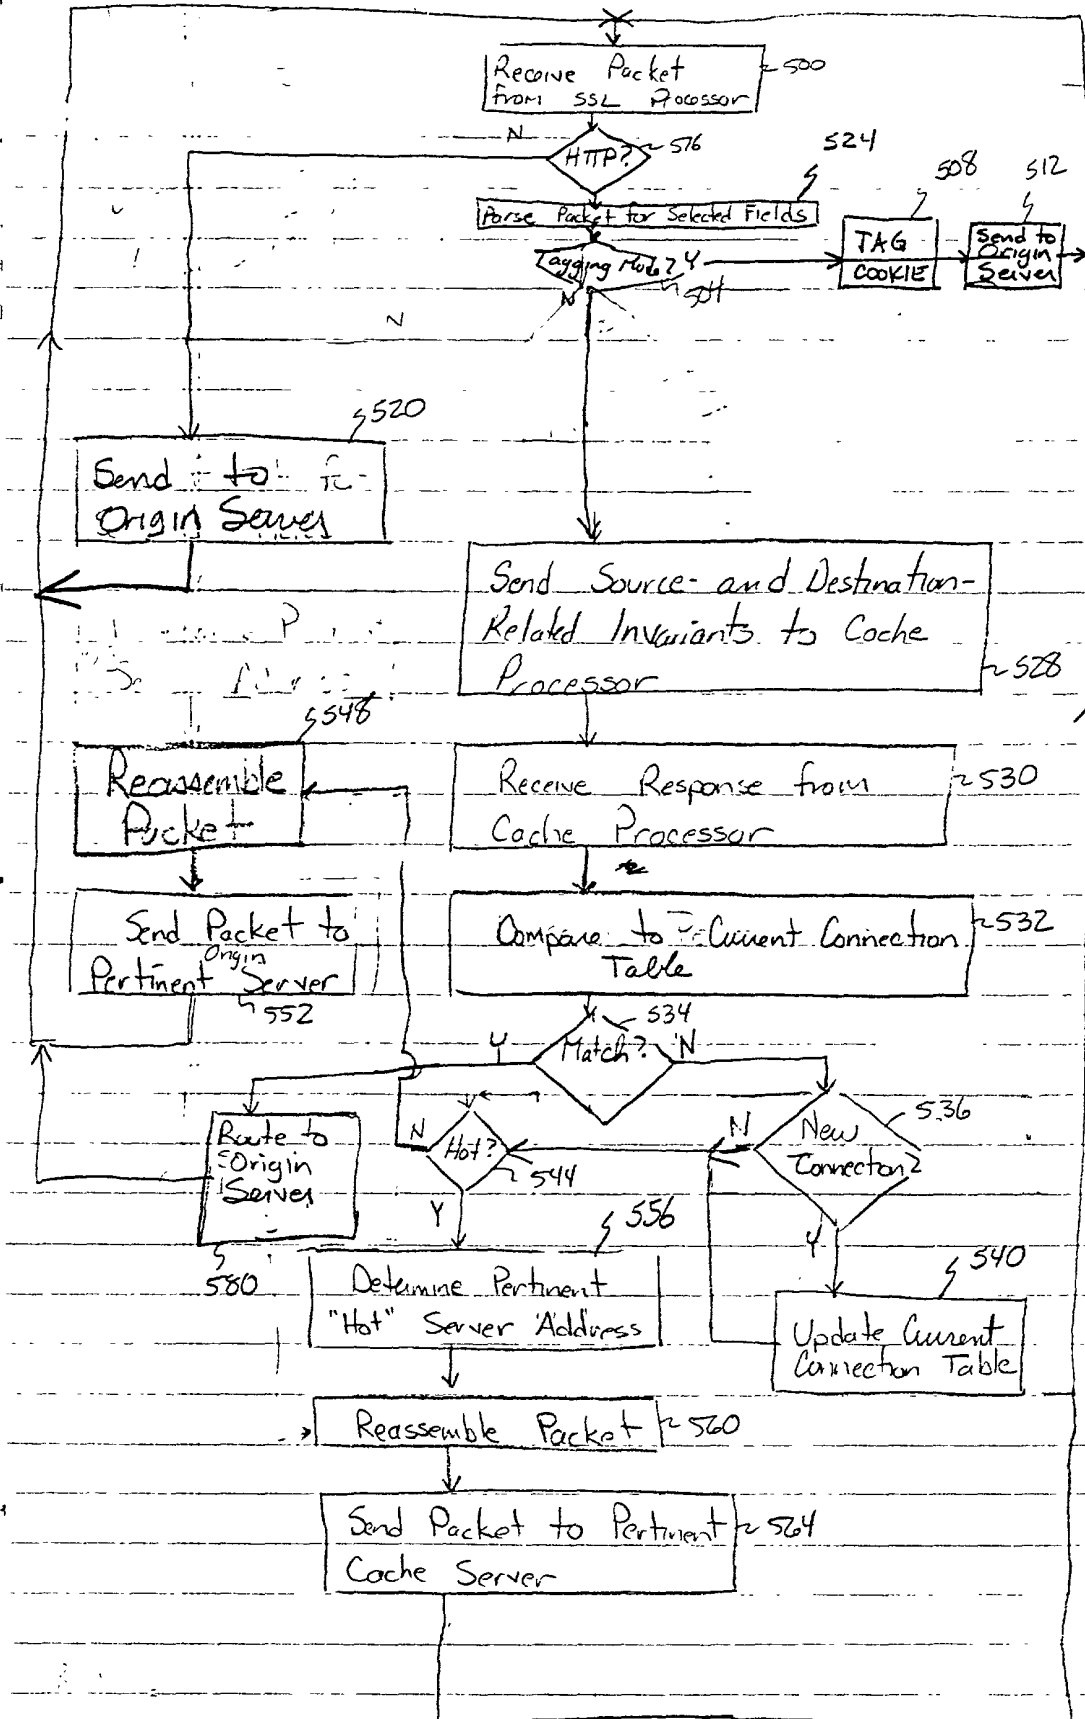 Receive Packet
from SSL Processor
500
N
HTTP?
516
524
508
512
Parse Packet for Selected Fields
Tagging Mode?
Y
504
N
TAG
COOKIE
Send to
Origin
Server
N
520
Send to
Origin Server
Send Source- and Destination-
Related Invariants to Cache
Processor
528
548
Reassemble
Packet
Receive Response from
Cache Processor
530
Send Packet to
Origin
Pertinent Server
552
Compare to Current Connection
Table
532
534
Match?
Y
N
Route to
Origin
Server
580
N
Hot?
544
Y
N
New
Connection?
536
Y
556
Determine Pertinent
"Hot" Server Address
540
Update Current
Connection Table
Reassemble Packet
560
Send Packet to Pertinent
Cache Server
564